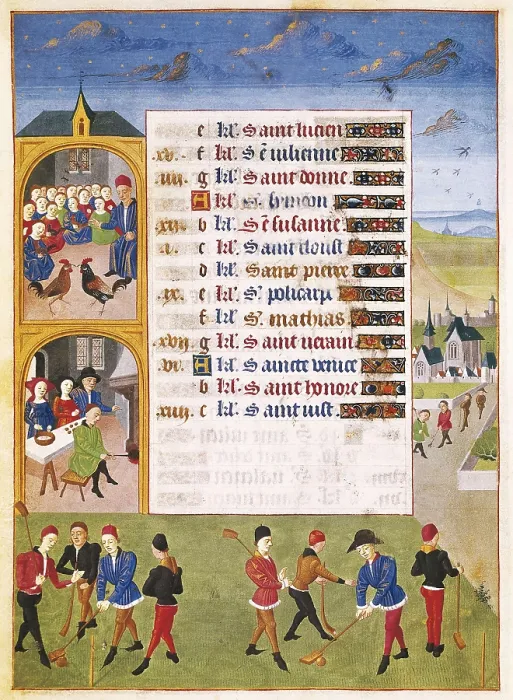 e kl. Saint lucien
.xv. f kl. Sͤ iulienne
.iiii. g kl. Saint donne
A kl. S. symeon
.xii. b kl. Sͤ susanne
.i. c kl. Saint
d kl. Saint pierre
.ix. e kl. S. policarp
f kl. S. mathias
.xvii. g kl. Saint uerain
.vi. A kl. Saincte venice
b kl. Saint honore
.xiiii. c kl. Saint iust